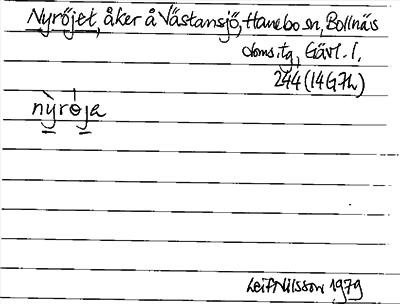 Nyröjet, åker å Västansjö, Hanebo sn, Bollnäs
doms.tg, Gävl. l.
244 (14G7h)
nỳrɵ́ja
Leif Nilsson 1979